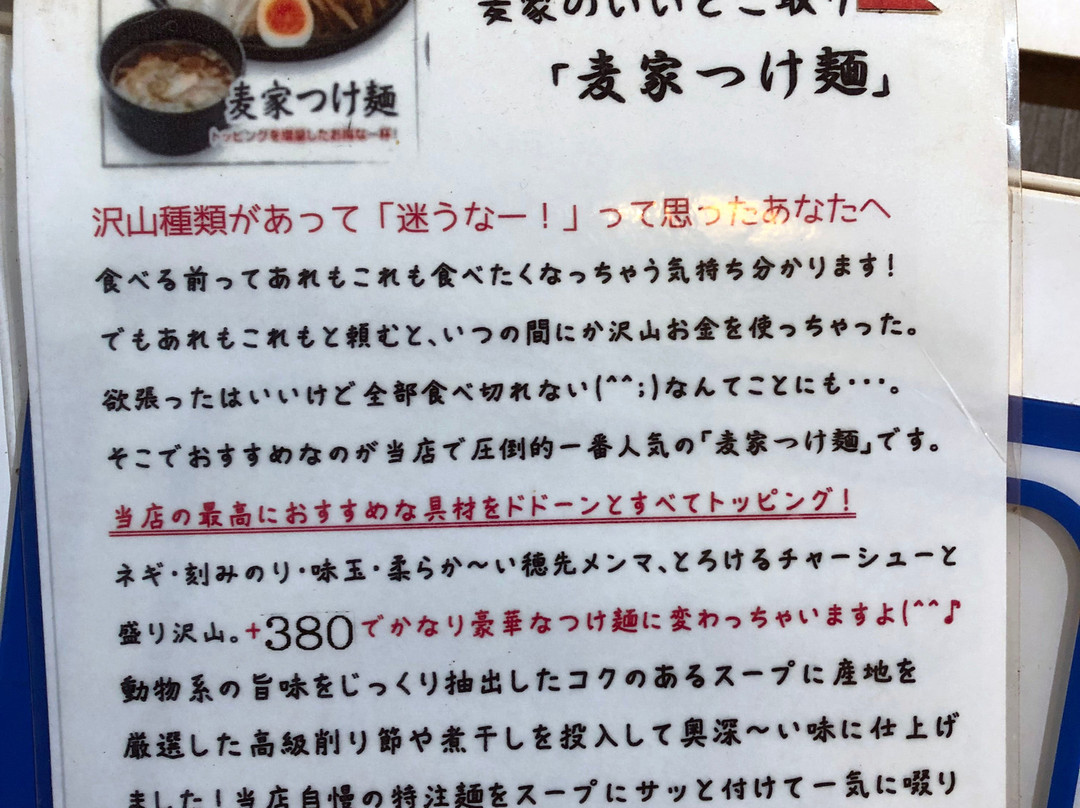 麦家のいいとこ取り
「麦家つけ麺」
麦家つけ麺
トッピングを増量したお得な一杯!
沢山種類があって「迷うなー!」って思ったあなたへ
食べる前ってあれもこれも食べたくなっちゃう気持ち分かります!
でもあれもこれもと頼むと、いつの間にか沢山お金を使っちゃった。
欲張ったはいいけど全部食べ切れない(^^;)なんてことにも・・・。
そこでおすすめなのが当店で圧倒的一番人気の「麦家つけ麺」です。
当店の最高におすすめな具材をドドーンとすべてトッピング!
ネギ・刻みのり・味玉・柔らか〜い穂先メンマ、とろけるチャーシューと
盛り沢山。+380でかなり豪華なつけ麺に変わっちゃいますよ(^^♪
動物系の旨味をじっくり抽出したコクのあるスープに産地を
厳選した高級削り節や煮干しを投入して奥深〜い味に仕上げ
ました!当店自慢の特注麺をスープにサッと付けて一気に啜り